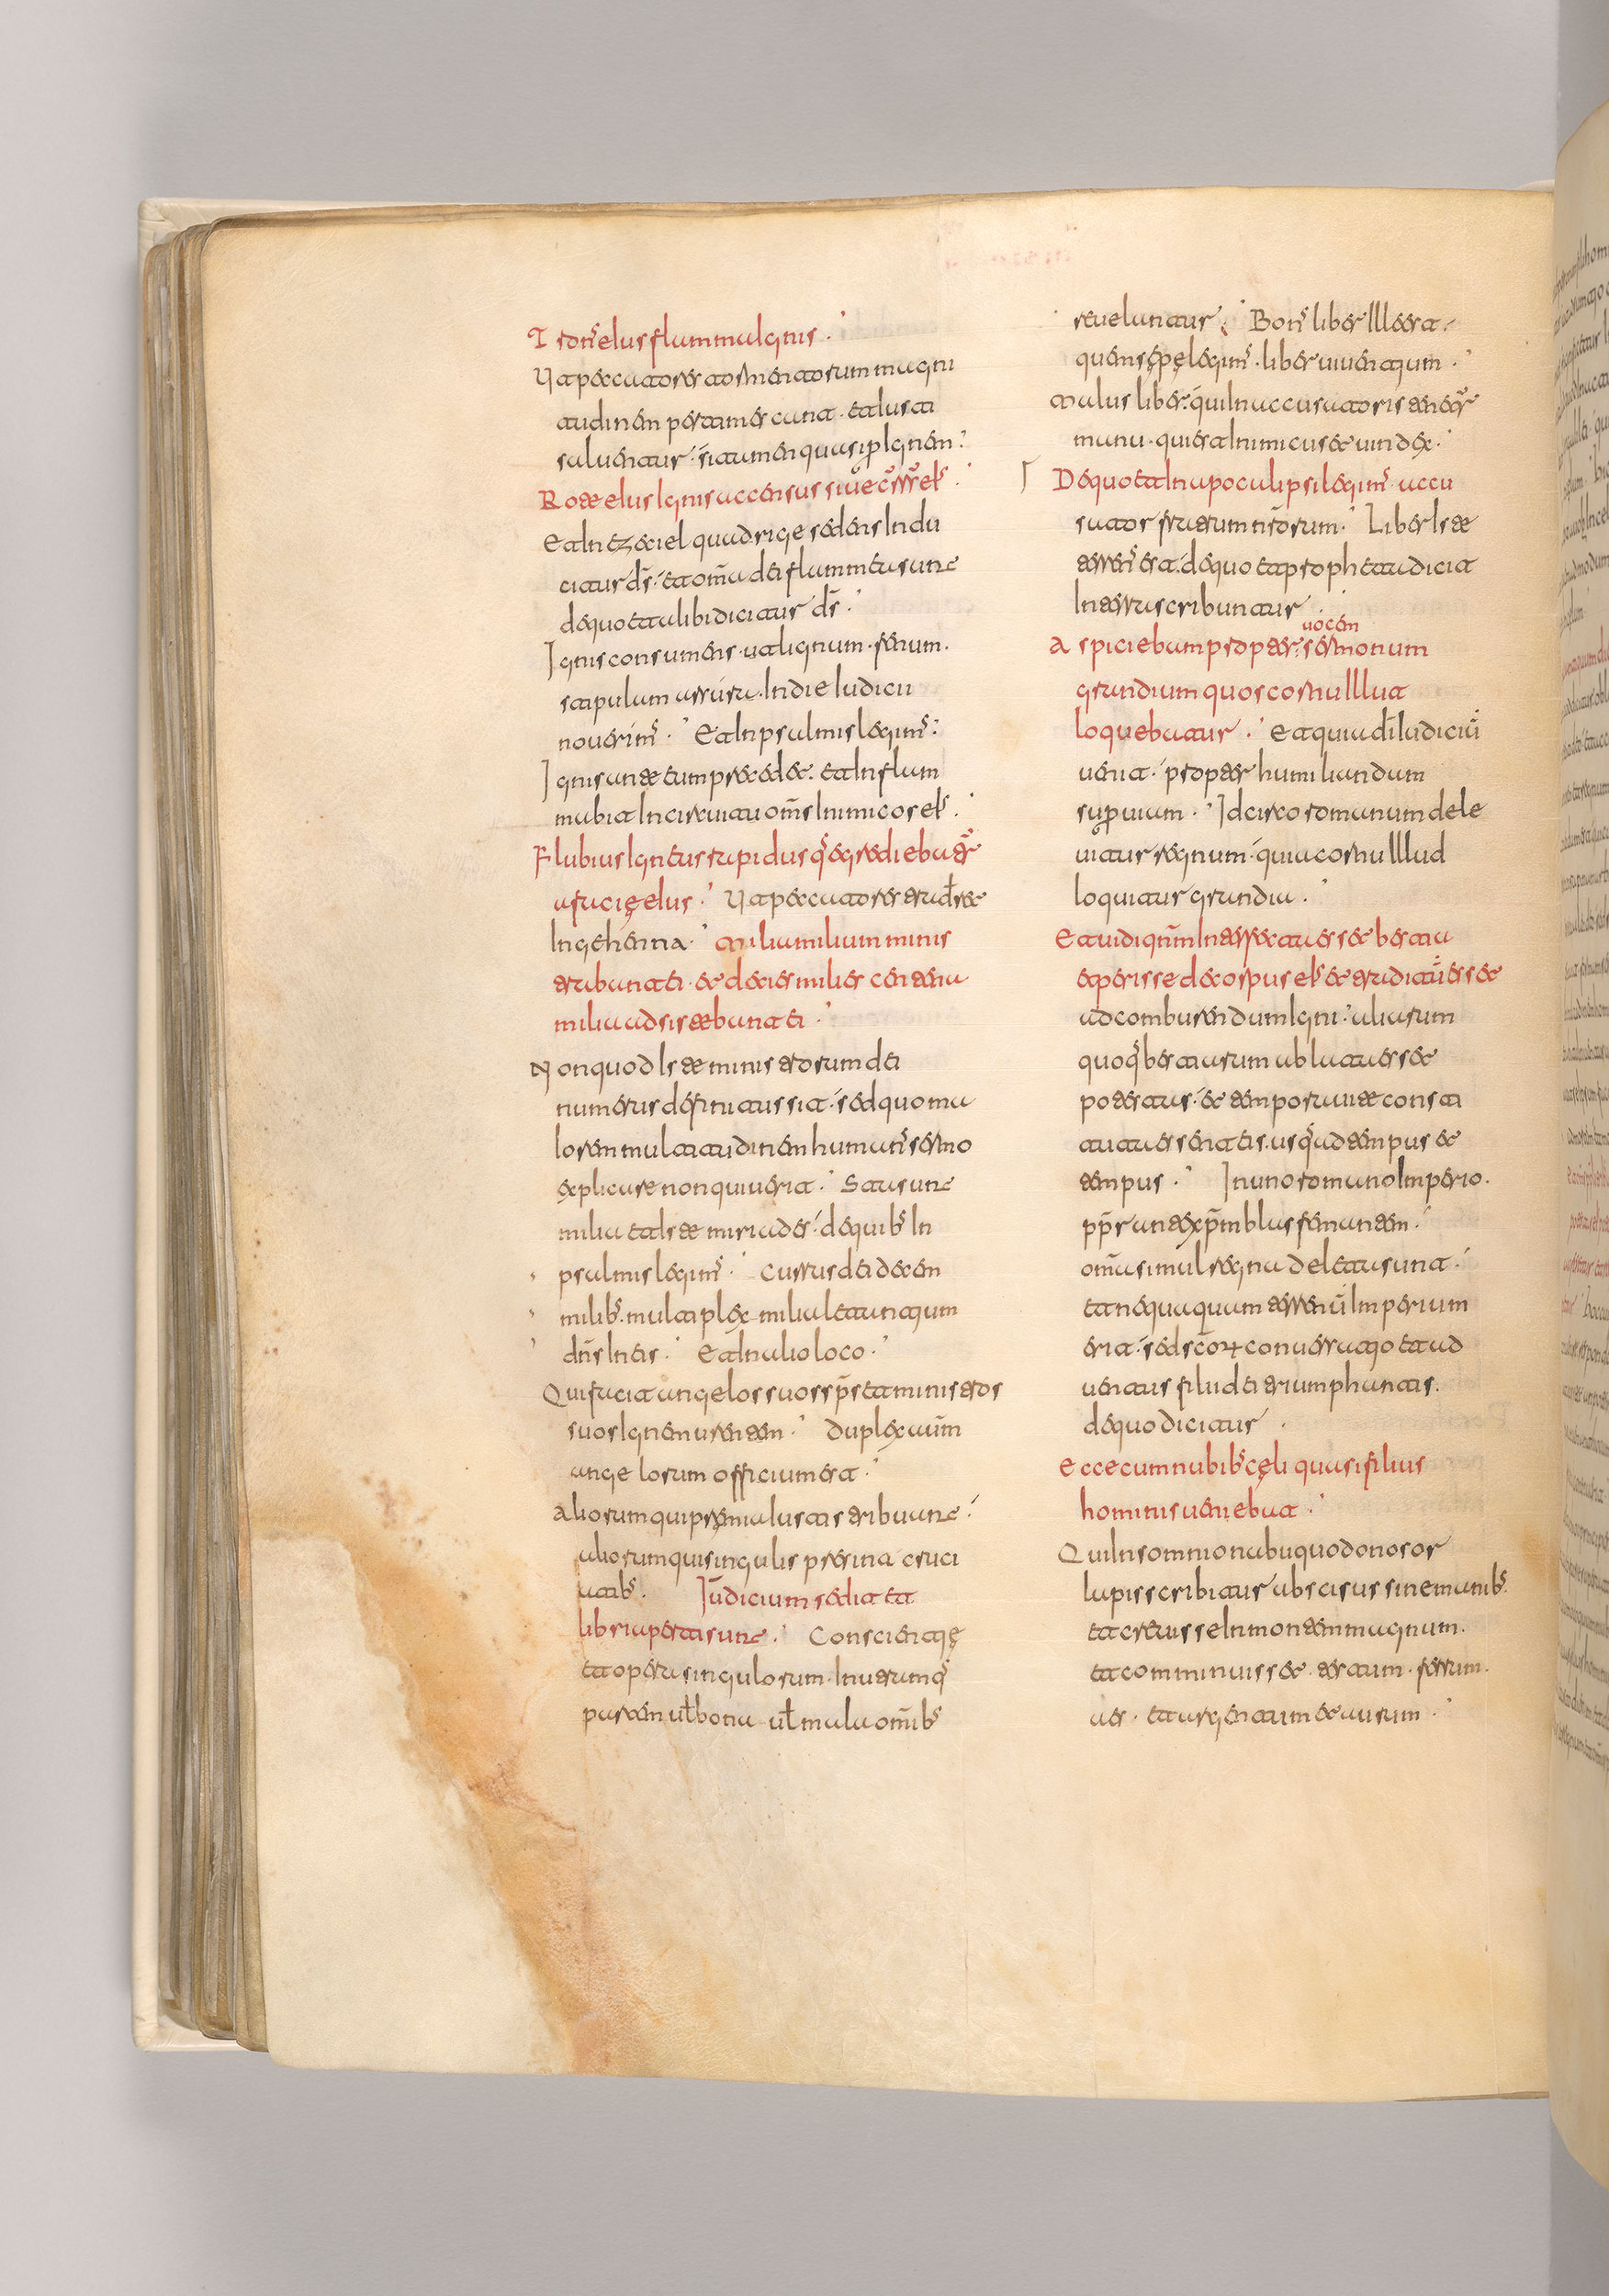 Tron᷒ eius flamma ignis.
Ut peccatores tormentorum magni
tudinem pertimescant. et iusti
salventur. sic tamen quasi per ignem.
Rote eius ignis accensus siue currus eis
Et in ezeciel quadrige sedens indu
citur ds̄. et omā dei flammeu sunt
de quo et alibi dicitur ds̄.
Ignis consumens. ut lignum. fenum.
stipulam arsura. in die iudicii
noverim᷒. Et in psalmis legim᷒.
Ignis ante eum precedet. et inflam
mabit in circuitu om̄s inimicos eis.
Flubius igneus rapidus q᷒ egrediebatur
a facie eius. Ut peccatores traderet
in gehenna. Milia milium minis
trabant ei. et decies milies centena
milia adsistebant ei.
Non quod iste ministrorum dei
numerus definitus sit. sed quo ma
iorem multitudinem human᷒ sermo
explicare non quiverit. Iste sunt
milia et iste miriades. de quib᷒ in
psalmis legim᷒. Currus dei decem
milib᷒. multiplex milia letantium
dn̄s in eis. Et in alio loco.
Qui facit angelos suos sp̄s et ministros
suos ignem urentem. Duplex autm̄
angelorum officium est.
aliorum qui premia iustis tribuunt.
aliorum qui singulis presint cruci
atib᷒. Iudicium sedit et
libri aperti sunt. Conscientię
et opera singulorum. in utramq᷒
partem ul̄ bona ul̄ mala om̄ib᷒
revelantur. Bon᷒ liber ille est.
quem sępe legim᷒. liber viventium.
Malus liber. qui in accusatoris tenetur
manu. qui est inimicus et vindex.
De quo et in apocalipsi legim᷒. accu
sator fratrum nr̄orum. Liber iste
terren᷒ est. de quo et propheta dicit
in terra scribantur.
vocem
Aspiciebam propter sermonum
grandium quos cornu illut
loquebatur. Et quia d̄i iudiciū
venit. propter humiliandam
superviam. Idcirco romanum dele
vitur regnum. quia cornu illud
loquitur grandia.
Et vidi qnm̄ interfecta esset bestia
et perisset corpus eis et tradita esset
ad comburendum igni. aliarum
quoq᷒ bestiarum ablata esset
potestas. et tempora vite consti
tuta essent eis. usq᷒ ad tempus et
tempus. In uno romano imperio.
pp̄r antexpm̄ blasfemantem.
omā simul regna deleta sunt.
et nequaquam terrenū imperium
erit. sed sc̄or conversatio et ad
ventus filii dei triumphantis.
de quo dicitur.
Ecce cum nubib᷒ cęli quasi filius
hominis veniebat.
Qui in somnio nabuquodonosor
lapis scribitur abscisus sine manib᷒
et crevisse in montem magnum.
et comminuisset. testum. ferrum.
aes. et argentum et aurum.